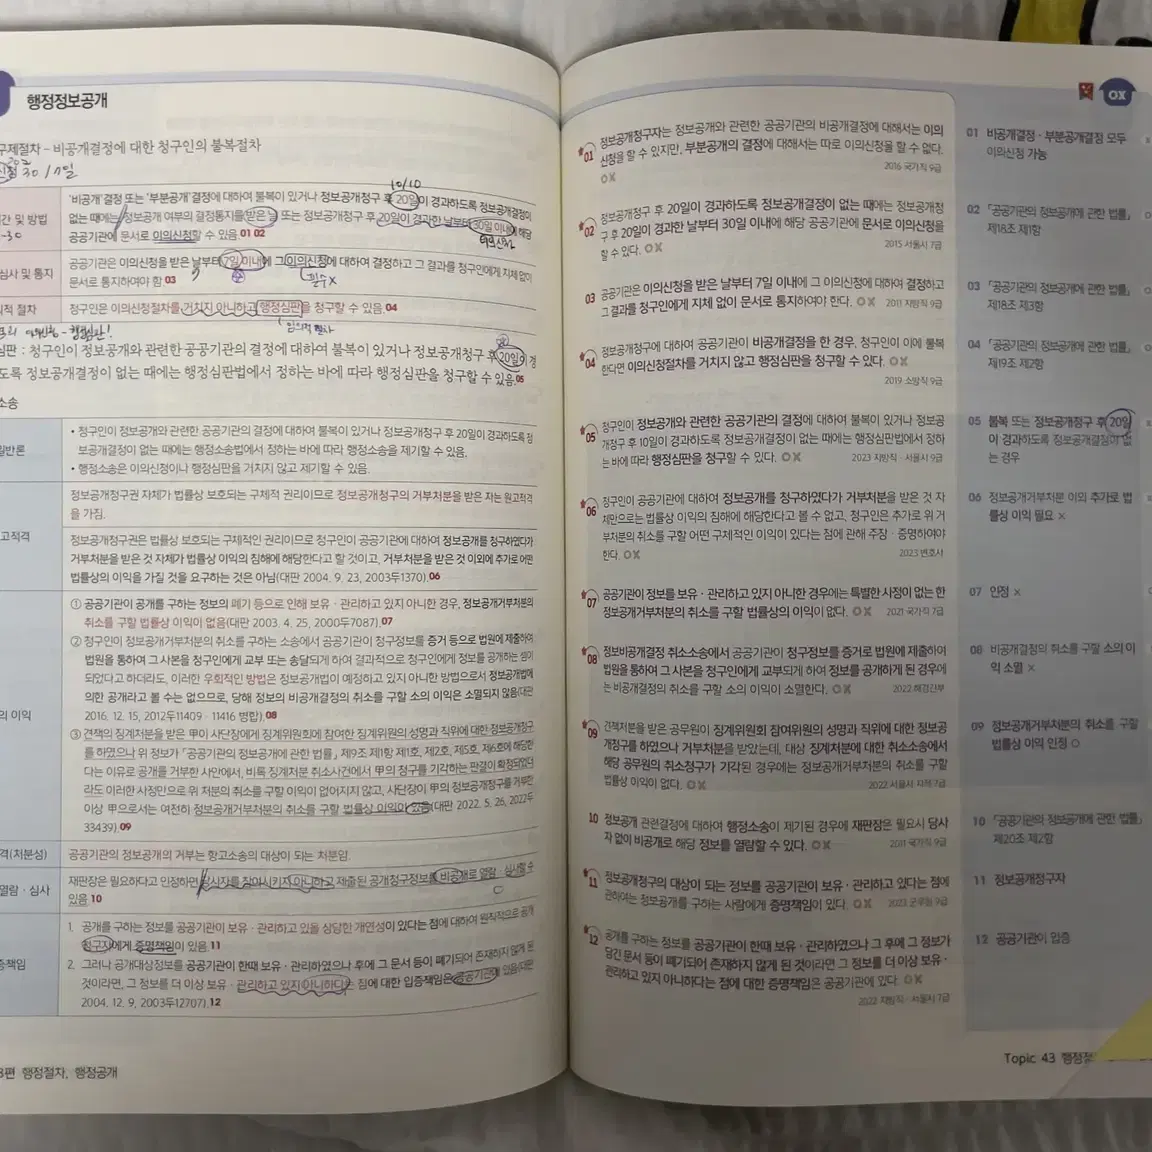 행정정보공개
구제절차 - 비공개결정에 대한 청구인의 불복절차
30 / 7일
10/10
'비공개'결정 또는 '부분공개'결정에 대하여 불복이 있거나 정보공개청구 후 20일이 경과하도록 정보공개결정이
없는 때에는 정보공개 여부의 결정통지를 받은 날 또는 정보공개청구 후 20일이 경과한 날부터 30일 이내에 해당
공공기관에 문서로 이의신청을 할 수 있음. 01 02
이의신청
간 및 방법
-30
심사 및 통지
공공기관은 이의신청을 받은 날부터 7일 이내에 그 이의신청에 대하여 결정하고 그 결과를 청구인에게 지체 없이
문서로 통지하여야 함. 03
필수X
의적 절차
청구인은 이의신청절차를 거치지 아니하고 행정심판을 청구할 수 있음. 04
임의적 절차
심판 : 청구인이 정보공개와 관련한 공공기관의 결정에 대하여 불복이 있거나 정보공개청구 후 20일이 경
도록 정보공개결정이 없는 때에는 행정심판법에서 정하는 바에 따라 행정심판을 청구할 수 있음. 05
소송
일반론
• 청구인이 정보공개와 관련한 공공기관의 결정에 대하여 불복이 있거나 정보공개청구 후 20일이 경과하도록 정
보공개결정이 없는 때에는 행정소송법에서 정하는 바에 따라 행정소송을 제기할 수 있음.
• 행정소송은 이의신청이나 행정심판을 거치지 않고 제기할 수 있음.
고적격
정보공개청구권 자체가 법률상 보호되는 구체적 권리이므로 정보공개청구의 거부처분을 받은 자는 원고적격
을 가짐.
정보공개청구권은 법률상 보호되는 구체적인 권리이므로 청구인이 공공기관에 대하여 정보공개를 청구하였다가
거부처분을 받은 것 자체가 법률상 이익의 침해에 해당한다고 할 것이고, 거부처분을 받은 것 이외에 추가로 어떤
법률상의 이익을 가질 것을 요구하는 것은 아님(대판 2004. 9. 23, 2003두1370). 06
의 이익
① 공공기관이 공개를 구하는 정보의 폐기 등으로 인해 보유 · 관리하고 있지 아니한 경우, 정보공개거부처분의
취소를 구할 법률상 이익이 없음(대판 2003. 4. 25, 2000두7087). 07
② 청구인이 정보공개거부처분의 취소를 구하는 소송에서 공공기관이 청구정보를 증거 등으로 법원에 제출하여
법원을 통하여 그 사본을 청구인에게 교부 또는 송달되게 하여 결과적으로 청구인에게 정보를 공개하는 셈이
되었다고 하더라도, 이러한 우회적인 방법은 정보공개법이 예정하고 있지 아니한 방법으로서 정보공개법에
의한 공개라고 볼 수는 없으므로, 당해 정보의 비공개결정의 취소를 구할 소의 이익은 소멸되지 않음(대판
2016. 12. 15, 2012두11409 · 11416 병합). 08
③ 견책의 징계처분을 받은 甲이 사단장에게 징계위원회에 참여한 징계위원의 성명과 직위에 대한 정보공개청구
를 하였으나 위 정보가 「공공기관의 정보공개에 관한 법률」 제9조 제1항 제1호, 제2호, 제5호, 제6호에 해당한
다는 이유로 공개를 거부한 사안에서, 비록 징계처분 취소사건에서 甲의 청구를 기각하는 판결이 확정되었더
라도 이러한 사정만으로 위 처분의 취소를 구할 이익이 없어지지 않고, 사단장이 甲의 정보공개청구를 거부한
이상 甲으로서는 여전히 정보공개거부처분의 취소를 구할 법률상 이익이 있음(대판 2022. 5. 26, 2022두
33439). 09
격(처분성)
공공기관의 정보공개의 거부는 항고소송의 대상이 되는 처분임.
열람 · 심사
재판장은 필요하다고 인정하면 당사자를 참여시키지 아니하고 제출된 공개청구정보를 비공개로 열람 · 심사할 수
있음. 10
증책임
1. 공개를 구하는 정보를 공공기관이 보유 · 관리하고 있을 상당한 개연성이 있다는 점에 대하여 원칙적으로 공개
청구자에게 증명책임이 있음. 11
2. 그러나 공개대상정보를 공공기관이 한때 보유 · 관리하였으나 후에 그 문서 등이 폐기되어 존재하지 않게 된
것이라면, 그 정보를 더 이상 보유 · 관리하고 있지 아니하다는 점에 대한 입증책임은 공공기관에 있음(대판
2004. 12. 9, 2003두12707). 12
3편 행정절차, 행정공개
OX
01 정보공개청구자는 정보공개와 관련한 공공기관의 비공개결정에 대해서는 이의
신청을 할 수 있지만, 부분공개의 결정에 대해서는 따로 이의신청을 할 수 없다.
O X 2016 국가직 9급
02 정보공개청구 후 20일이 경과하도록 정보공개결정이 없는 때에는 정보공개청
구 후 20일이 경과한 날부터 30일 이내에 해당 공공기관에 문서로 이의신청을
할 수 있다. O X 2015 서울시 7급
03 공공기관은 이의신청을 받은 날부터 7일 이내에 그 이의신청에 대하여 결정하고
그 결과를 청구인에게 지체 없이 문서로 통지하여야 한다. O X 2011 지방직 9급
04 정보공개청구에 대하여 공공기관이 비공개결정을 한 경우, 청구인이 이에 불복
한다면 이의신청절차를 거치지 않고 행정심판을 청구할 수 있다. O X
2019 소방직 9급
05 청구인이 정보공개와 관련한 공공기관의 결정에 대하여 불복이 있거나 정보공
개청구 후 10일이 경과하도록 정보공개결정이 없는 때에는 행정심판법에서 정하
는 바에 따라 행정심판을 청구할 수 있다. O X 2023 지방직 · 서울시 9급
06 청구인이 공공기관에 대하여 정보공개를 청구하였다가 거부처분을 받은 것 자
체만으로는 법률상 이익의 침해에 해당한다고 볼 수 없고, 청구인은 추가로 위 거
부처분의 취소를 구할 어떤 구체적인 이익이 있다는 점에 관해 주장 · 증명하여야
한다. O X 2023 변호사
07 공공기관이 정보를 보유 · 관리하고 있지 아니한 경우에는 특별한 사정이 없는 한
정보공개거부처분의 취소를 구할 법률상의 이익이 없다. O X 2021 국가직 7급
08 정보비공개결정 취소소송에서 공공기관이 청구정보를 증거로 법원에 제출하여
법원을 통하여 그 사본을 청구인에게 교부되게 하여 정보를 공개하게 된 경우에
는 비공개결정의 취소를 구할 소의 이익이 소멸한다. O X 2022 해경간부
09 견책처분을 받은 공무원이 징계위원회 참여위원의 성명과 직위에 대한 정보공
개청구를 하였으나 거부처분을 받았는데, 대상 징계처분에 대한 취소소송에서
해당 공무원의 취소청구가 기각된 경우에는 정보공개거부처분의 취소를 구할
법률상 이익이 없다. O X 2022 서울시 지적 7급
10 정보공개 관련결정에 대하여 행정소송이 제기된 경우에 재판장은 필요시 당사
자 없이 비공개로 해당 정보를 열람할 수 있다. O X 2011 국가직 9급
11 정보공개청구의 대상이 되는 정보를 공공기관이 보유 · 관리하고 있다는 점에
관하여는 정보공개를 구하는 사람에게 증명책임이 있다. O X 2023 군무원 9급
12 공개를 구하는 정보를 공공기관이 한때 보유 · 관리하였으나 그 후에 그 정보가
담긴 문서 등이 폐기되어 존재하지 않게 된 것이라면 그 정보를 더 이상 보유 ·
관리하고 있지 아니하다는 점에 대한 증명책임은 공공기관에 있다. O X
2022 지방직 · 서울시 7급
01 비공개결정 · 부분공개결정 모두
이의신청 가능
02 「공공기관의 정보공개에 관한 법률」
제18조 제1항
03 「공공기관의 정보공개에 관한 법률」
제18조 제3항
04 「공공기관의 정보공개에 관한 법률」
제19조 제2항
05 불복 또는 정보공개청구 후 20일
이 경과하도록 정보공개결정이 없
는 경우
06 정보공개거부처분 이외 추가로 법
률상 이익 필요 ×
07 인정 ×
08 비공개결정의 취소를 구할 소의 이
익 소멸 ×
09 정보공개거부처분의 취소를 구할
법률상 이익 인정 ○
10 「공공기관의 정보공개에 관한 법률」
제20조 제2항
11 정보공개청구자
12 공공기관이 입증
Topic 43 행정정